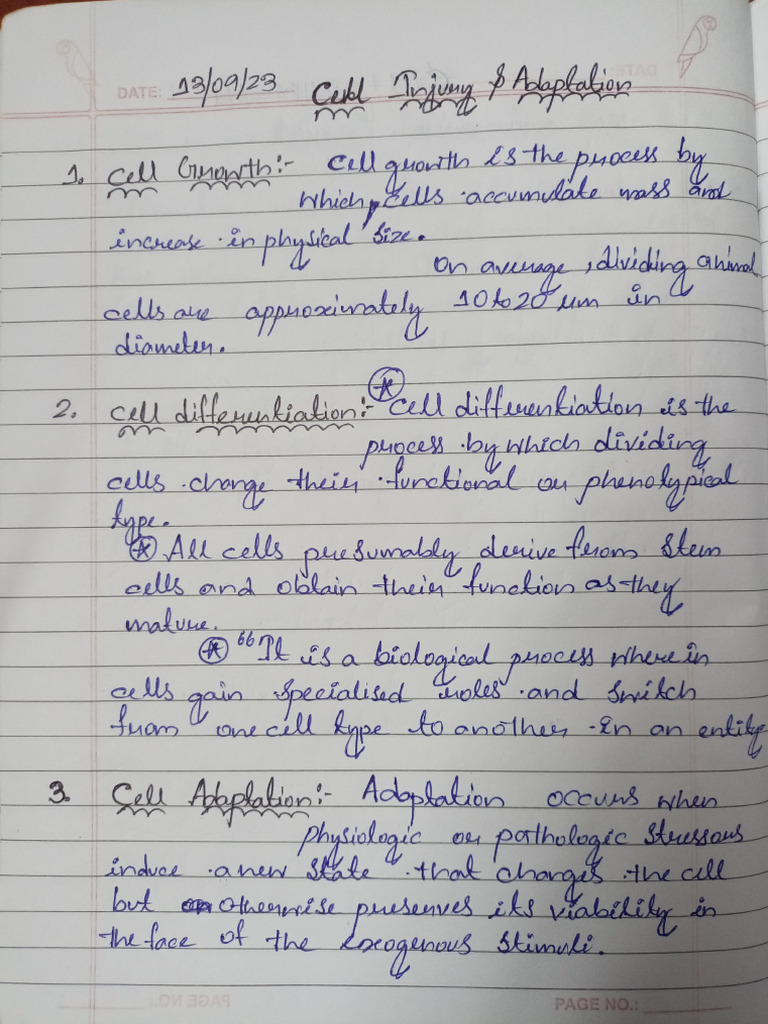 DATE: 13/09/23 Cell Injury & Adaptation
1. Cell Growth:- Cell growth is the process by
which cells accumulate mass and
increase in physical size.
On average, dividing animal
cells are approximately 10 to 20 um in
diameter.
2. Cell differentiation:- * Cell differentiation is the
process by which dividing
cells change their functional or phenotypical
type.
* All cells presumably derive from stem
cells and obtain their function as they
mature.
* "It is a biological process wherein
cells gain specialised roles and switch
from one cell type to another in an entity
3. Cell Adaptation:- Adaptation occurs when
physiologic or pathologic stressous
induce a new state that changes the cell
but otherwise preserves its viability in
the face of the exogenous stimuli.
PAGE NO.: